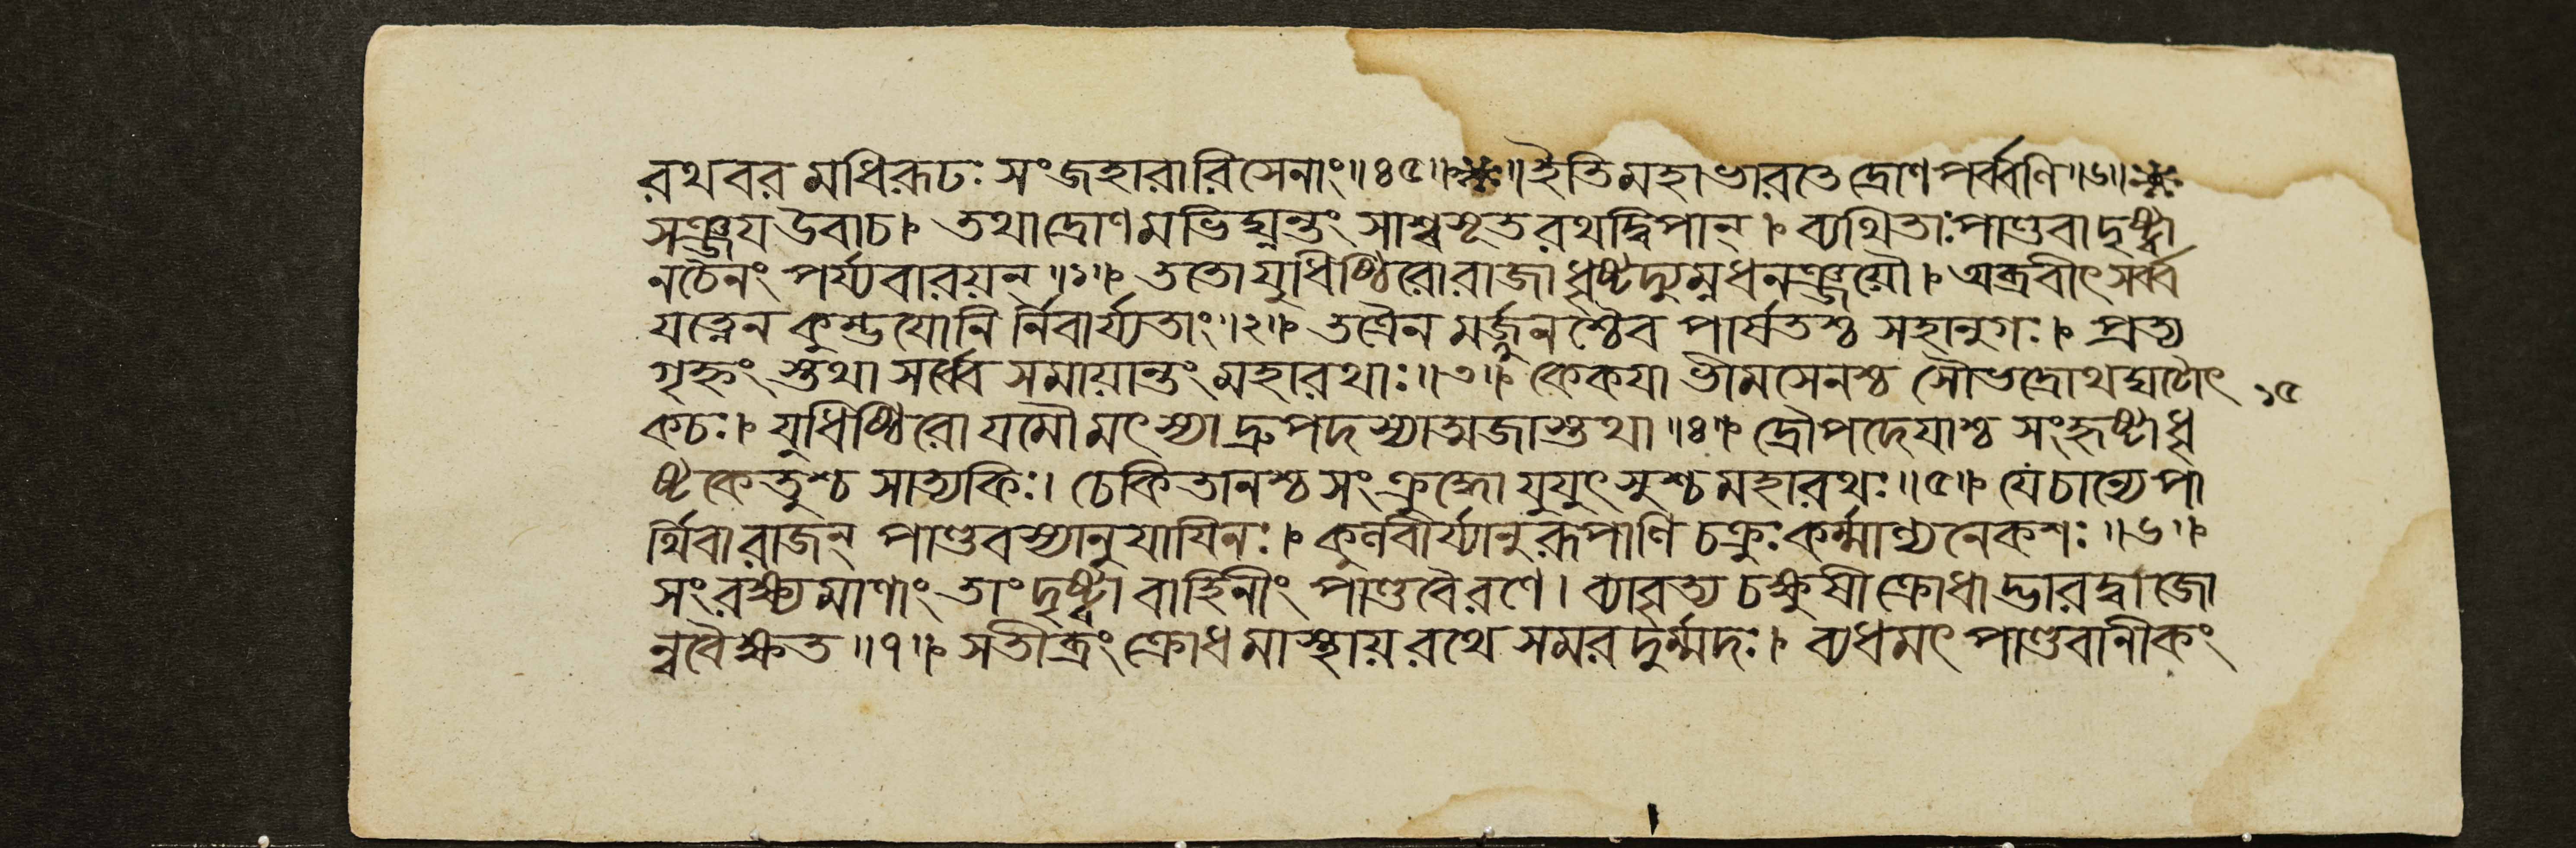 রথবরমধিরূঢঃ সংজহারারিসেনাং॥৪৫॥※॥ইতিমহাভারতেদ্রোণপর্ব্বণি॥৬॥※
সঞ্জয উবাচ। তথাদ্রোণমভিঘ্নন্তং সাশ্বসূতরথদ্বিপান্। ব্যথিতাঃপাণ্ডবাদৃষ্ট্বা
নচৈনং পর্য্যবারয়ন্॥১॥ ততোযুধিষ্ঠিরোরাজাধৃষ্টদ্যুম্নধনঞ্জয়ৌ। অব্রবীৎসর্ব্ব
যত্নেন কুম্ভযোনি র্নিবার্য্যতাং॥২॥ তত্রৈন মর্জ্জুনশ্চৈব পার্ষতশ্চ সহানুগঃ। প্রত্য
গৃহ্নং স্তথা সর্ব্বে সমায়ান্তং মহারথাঃ॥৩॥ কেকযা ভীমসেনশ্চ সৌভদ্রোথঘটোৎ ১৫
কচঃ। যুধিষ্ঠিরো যমৌ মৎস্যা দ্রুপদস্যাত্মজাস্তথা॥৪॥ দ্রৌপদেযাশ্চ সংহৃষ্টাধৃ
ষ্টকেতুশ্চ সাত্যকিঃ। চেকিতানশ্চ সংক্রুদ্ধো যুযুৎসুশ্চমহারথঃ॥৫॥ যেচান্যেপা
র্থিবারাজন্ পাণ্ডবস্যানুযাযিনঃ। কুলবীর্য্যানুরূপাণি চক্রুঃকর্ম্মাণ্যনেকশঃ॥৬॥
সংরক্ষ্যমাণাং তাংদৃষ্ট্বা বাহিনীং পাণ্ডবৈরণে। ব্যাবৃত্য চক্ষুষীক্রোধাদ্ভারদ্বাজো
ন্ববৈক্ষত॥৭॥ সতীব্রং ক্রোধমাস্থায়রথে সমরদুর্ম্মদঃ। ব্যধমৎ পাণ্ডবানীকং